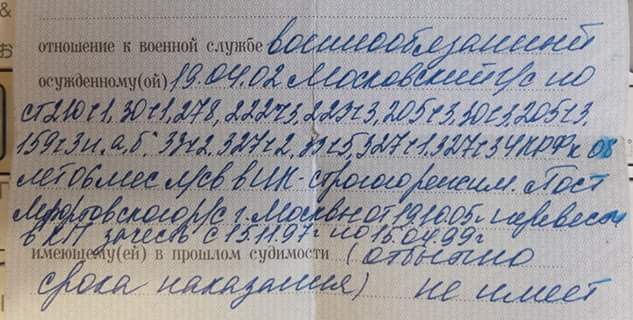 отношение к военной службе военнообязанный
осужденному(ой) 19.04.02 Московский г/с по
ст 210ч1, 30ч1, 278, 222ч3, 223ч3, 205ч3, 30ч3, 205ч3,
159ч3 п. а, б, 33ч2, 327ч2, 33ч5, 327ч1, 327ч3 УК РФ к 08
лет 06 мес л/св в ИК-строгого режим. Пост
Лефортовского р/с г. Москвы от 19.10.05г. перевест
в КП зачесть с 15.11.97г по 15.04.99г
имеющему(ей) в прошлом судимости (отбытию
срока наказания) не имеет